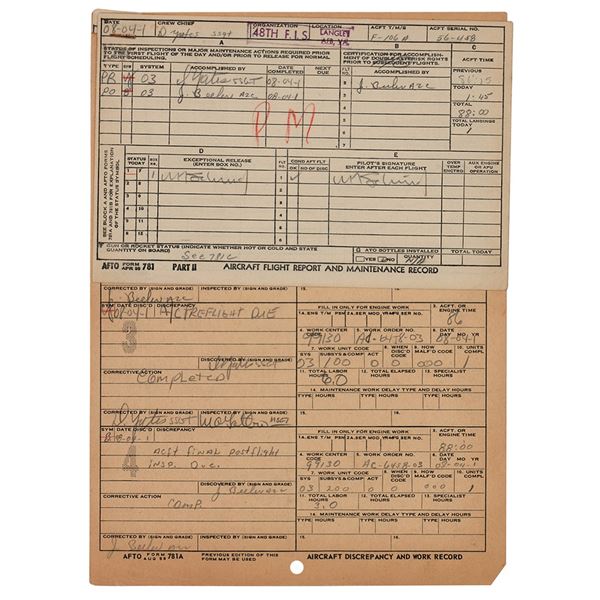 DATE CREW CHIEF ORGANIZATION LOCATION ACFT T/M/S ACFT SERIAL NO.
08-04-1 D Yates SSGT 48TH F.I.S. LANGLEY AFB, VA. F-106A 56-458
A B C
STATUS OF INSPECTIONS OR MAJOR MAINTENANCE ACTIONS REQUIRED PRIOR
TO THE FIRST FLIGHT OF THE DAY AND/OR PRIOR TO RELEASE FOR NORMAL
FLIGHT SCHEDULING.
CERTIFICATION FOR ACCOMPLISH-
MENT OF
PRIOR TO SUBSEQUENT FLIGHTS.
ACFT TIME
TYPE SYM SYSTEM ACCOMPLISHED BY DATE COMPLETED NEXT DUE FLT NO. ACCOMPLISHED BY PREVIOUS
PR 03 D Yates SSGT 08-04-1
PO 03 J. Beeler A2C 08-04-1 J. Beeler A2C
TODAY
1:45
TOTAL
88:00
TOTAL LANDINGS
TODAY
1
PM
D E
STATUS TODAY EXCEPTIONAL RELEASE
(ENTER BOX NO.)
FLT NO. COND AFT FLT
OK NO OF DISC
PILOT'S SIGNATURE
ENTER AFTER EACH FLIGHT
OVER TEMP ENCTRD. AUX ENGINE OR APU OPERATION
SEE BLOCK A AND AFTO FORMS
781A AND 781B FOR EXPLANATION
OF THE STATUS SYMBOL
F GUN OR ROCKET STATUS (INDICATE WHETHER HOT OR COLD AND STATE
QUANTITY ON BOARD)
See 781C
G ATO BOTTLES INSTALLED
YES NO QUANTITY
AFTO FORM APR 59 781 PART II AIRCRAFT FLIGHT REPORT AND MAINTENANCE RECORD
CORRECTED BY (SIGN AND GRADE) INSPECTED BY (SIGN AND GRADE) 15. 16.
J. Beeler A2C
SYM DATE DISC'D DISCREPANCY FILL IN ONLY FOR ENGINE WORK 3. ACFT. OR ENGINE TIME
08-04-1 A/C PREFLIGHT DUE 86
3
4. WORK CENTER CODE 5. WORK ORDER NO. 6. DATE DAY MO YR
99130 AC-6458-03 08-04-1
7. WORK UNIT CODE 8. WHEN DISC'D CODE 9. HOW MALF'D CODE 10. UNITS COMPL
SYS SUBSYS & COMPL ACT
03 100 0 0 000 1
DISCOVERED BY (SIGN AND GRADE)
CORRECTIVE ACTION 11. TOTAL LABOR HOURS 12. TOTAL ELAPSED HOURS 13. SPECIALIST HOURS
Completed 6.0
14. MAINTENANCE WORK DELAY TYPE AND DELAY HOURS
TYPE HOURS TYPE HOURS TYPE HOURS TYPE HOURS
CORRECTED BY (SIGN AND GRADE) INSPECTED BY (SIGN AND GRADE) 15. 16.
D Yates SSGT
SYM DATE DISC'D DISCREPANCY FILL IN ONLY FOR ENGINE WORK 3. ACFT. OR ENGINE TIME
08-04-1 88:00
4
Acft Final postflight
Insp. Due.
4. WORK CENTER CODE 5. WORK ORDER NO. 6. DATE DAY MO YR
99130 AC-6458-03 08-04-1
7. WORK UNIT CODE 8. WHEN DISC'D CODE 9. HOW MALF'D CODE 10. UNITS COMPL
SYS SUBSYS & COMPL ACT
03 200 0 0 000 1
DISCOVERED BY (SIGN AND GRADE)
J Beeler A2C
CORRECTIVE ACTION 11. TOTAL LABOR HOURS 12. TOTAL ELAPSED HOURS 13. SPECIALIST HOURS
Comp. 3.0
14. MAINTENANCE WORK DELAY TYPE AND DELAY HOURS
TYPE HOURS TYPE HOURS TYPE HOURS TYPE HOURS
CORRECTED BY (SIGN AND GRADE) INSPECTED BY (SIGN AND GRADE) 15. 16.
J Beeler A2C
AFTO FORM AUG 59 781A PREVIOUS EDITION OF THIS FORM MAY BE USED. AIRCRAFT DISCREPANCY AND WORK RECORD